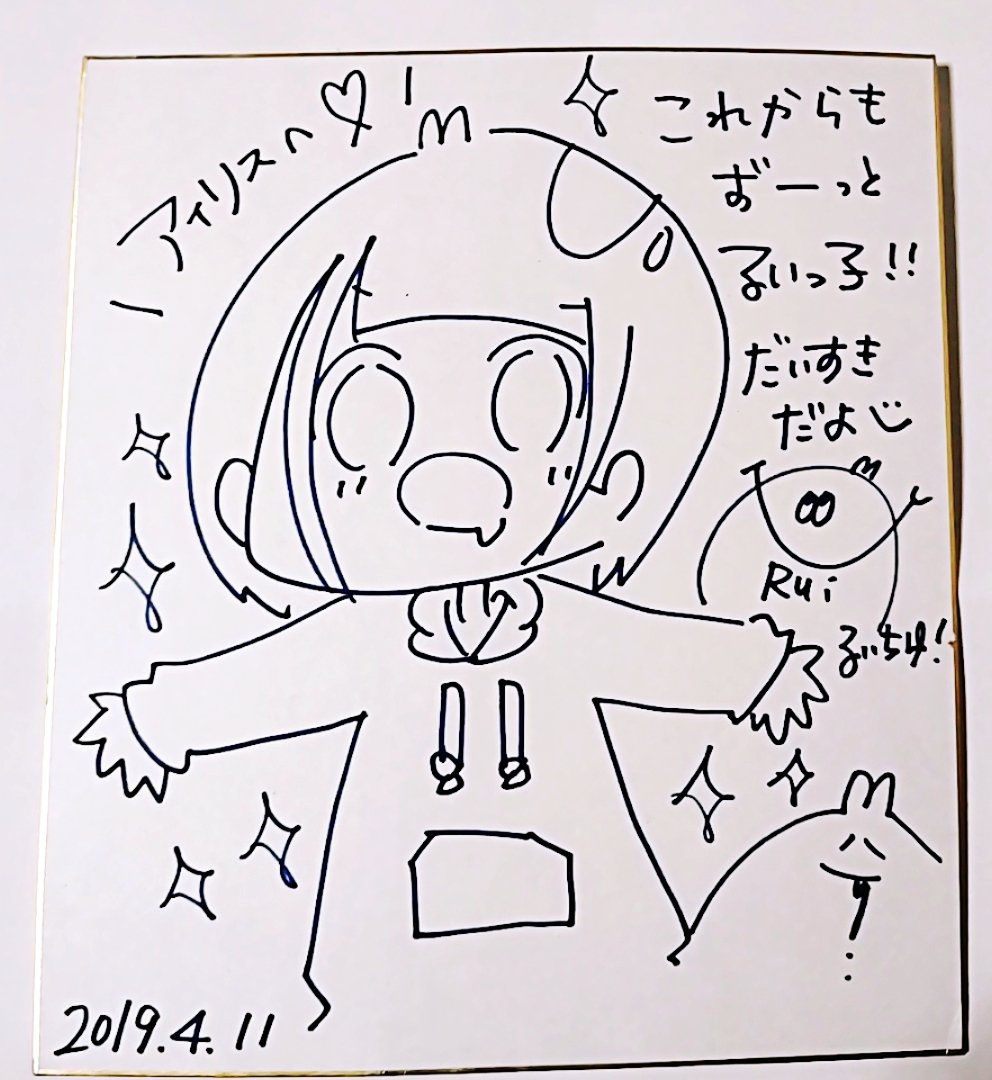 アイリスへ♡
これからも
ずーっと
るいっ子!!
だいすき
だよ
Rui
るいちゅ!
2019.4.11